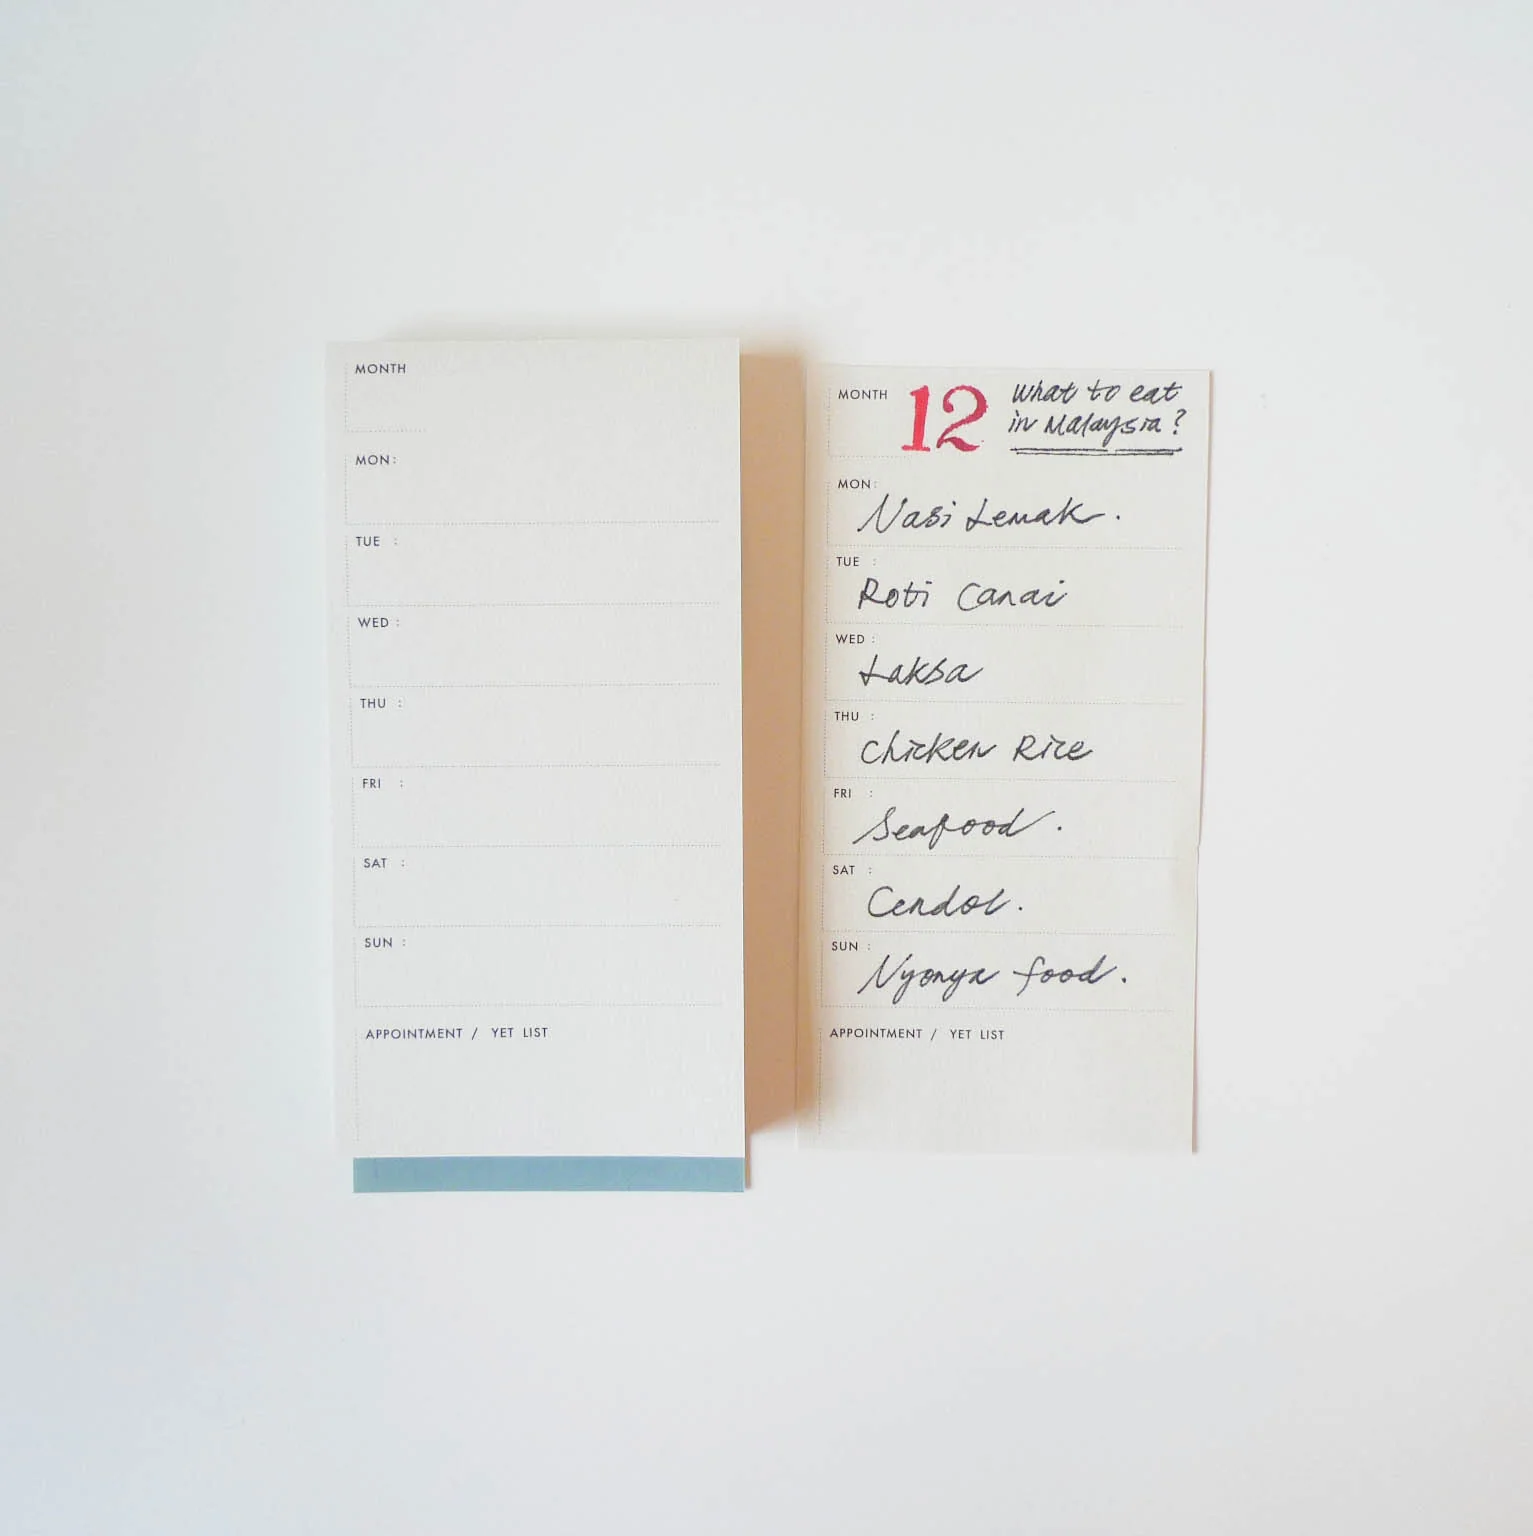 MONTH
MON:
TUE :
WED :
THU :
FRI :
SAT :
SUN :
APPOINTMENT / YET LIST
MONTH 12 What to eat
in Malaysia?
MON:
Nasi Lemak.
TUE :
Roti Canai
WED :
Laksa
THU :
Chicken Rice
FRI :
Seafood.
SAT :
Cendol.
SUN :
Nyonya food.
APPOINTMENT / YET LIST